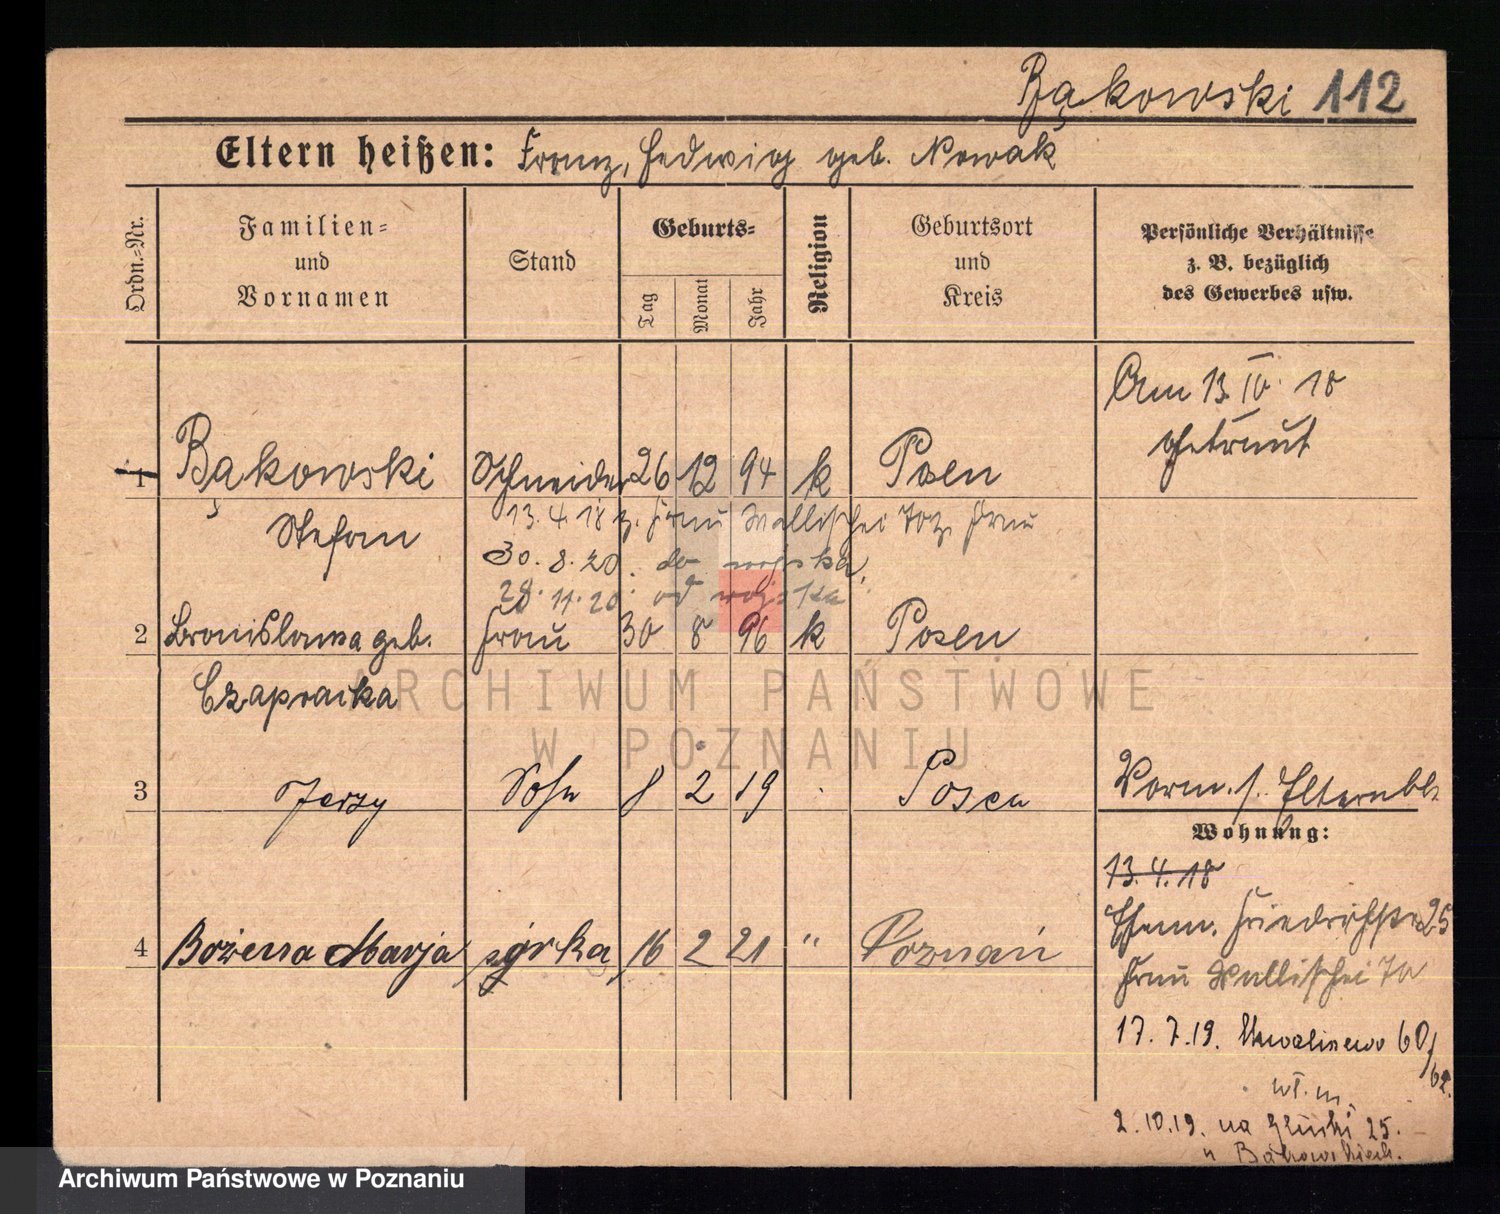 Bąkowski 112
Eltern heißen: Franz, Hedwig geb. Nowak
Ordn.-Nr.
Familien-
und
Vornamen
Stand
Geburts-
Tag
Monat
Jahr
Religion
Geburtsort
und
Kreis
Persönliche Verhältnisse
z. B. bezüglich
des Gewerbes usw.
Am 13. IV. 18
getraut
1 Bąkowski Schneider 26 12 94 k Posen
Stefan
13.4.18 z. Frau Wallischei 70
30.8.20. do wojska
28.11.20. od wojska
2 Bronislawa geb. Frau 30 8 96 k Posen
3 Jerzy Sohn 8 2 19 Posen
Vorm. s. Elternbl.
Wohnung:
13.4.18
Friedrichstr 25
Frau Wallischei 70
17.7.19. Chwaliszewo 60/62.
wł. m.
4 Bożena Marja córka 16 2 21 " Poznań
2.10.19. na 25.
u
ARCHIWUM PAŃSTWOWE
W POZNANIU
Archiwum Państwowe w Poznaniu